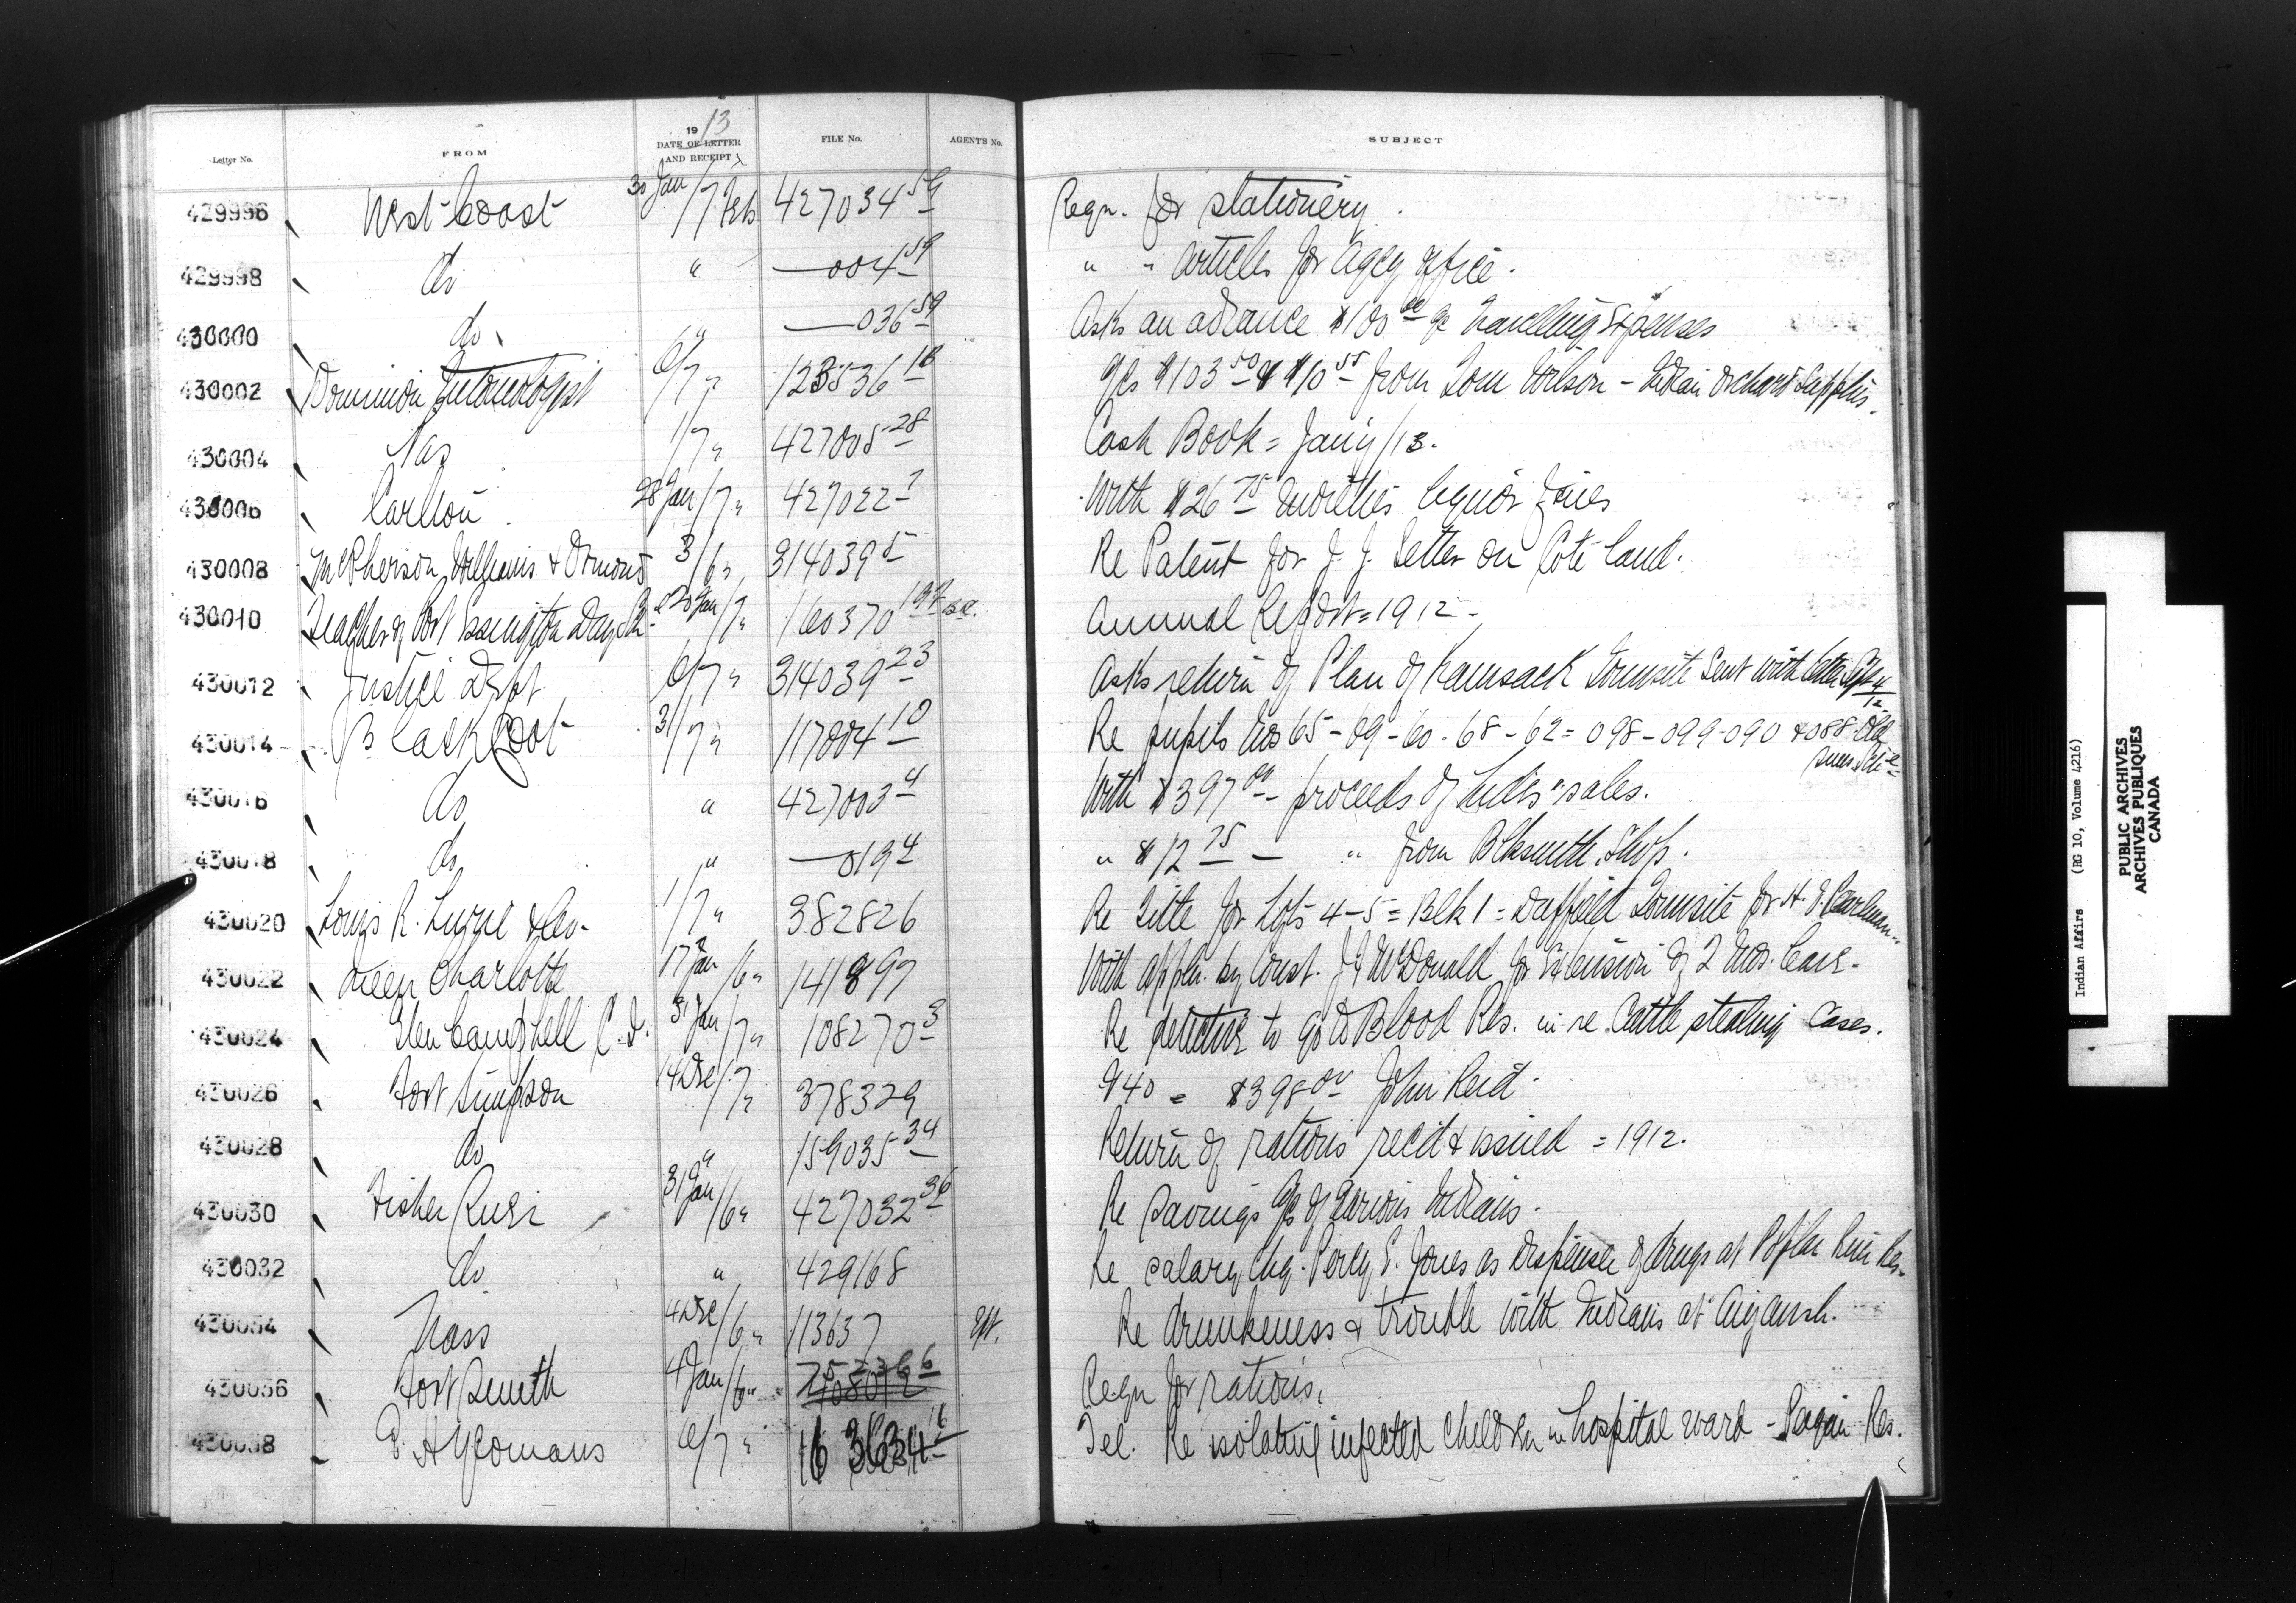 Letter No. FROM 1913 DATE OF LETTER AND RECEIPT FILE No. AGENT'S No. SUBJECT
429996 West Coast 30 Jan/7 Feb 427034 59 Reqn. for stationery.
429998 do " — 004 59 " " articles for agcy office.
430000 do " — 036 59 Asks an advance $100 00 a/c travelling expenses
430002 Dominion Entomologist 6/7 " 123536 18 a/cs $103 50 & $10 55 from Tom Wilson - Indian Orchard Supplies.
430004 Pas 1/7 " 427005 28 Cash Book = Jany/13.
430006 Carlton 28 Jan/7 " 427022 7 With $26 75 Moieties liquor fines
430008 McPherson, Williams & Ormond 3/6 " 314039 5 Re Patent for J. J. Setter on Coté land.
430010 Teacher of Port Essington Day Sch. 20 Jan/7 " 160370 B.C. Annual Report = 1912 -
430012 Justice Dept 6/7 " 314039 23 Asks return of Plan of Kamsack Townsite sent with letter Sept 4/12
430014 Blackfoot 31/7 " 117004 10 Re pupils Nos 65 - 09 - 60 - 68 - 62 = 098 - 099 - 090 & 088 Old Suns Sch
430016 do " 427003 4 With $397 00 - proceeds of Inds' sales.
430018 do " — 019 4 " $12 75 - " from Blksmith Shop.
430020 Louis R. & Co. 1/7 " 382826 Re Title for Lots 4-5 = Blk 1 = Duffield Townsite for
430022 Queen Charlotte 17 Jan/6 " 141897 With appln. by Const. McDonald for extension of 2 mos. leave.
430024 Glen Campbell C.I. 31 Jan/7 " 108270 3 Re detective to go to Blood Res. in re Cattle stealing cases.
430026 Fort Simpson 14 Dec/7 " 378329 940 = $398 00 John Reid.
430028 do " 159035 34 Return of rations recd & issued = 1912.
430030 Fisher River 31 Jan/6 " 427032 36 Re Savings a/cs of various Indians.
430032 do " 429168 Re salary chq. Percy E. Jones as dispenser of drugs at Poplar River Res.
430034 Nass 4 Dec/6 " 113637 Re drunkeness & trouble with Indians at Aiyansh.
430036 Fort Smith 4 Jan/6 " Reqn for rations.
430038 Yeomans 6/7 " Tel. Re isolating infected children in hospital ward - Res.
Indian Affairs (RG 10, Volume 4216)
PUBLIC ARCHIVES
ARCHIVES PUBLIQUES
CANADA